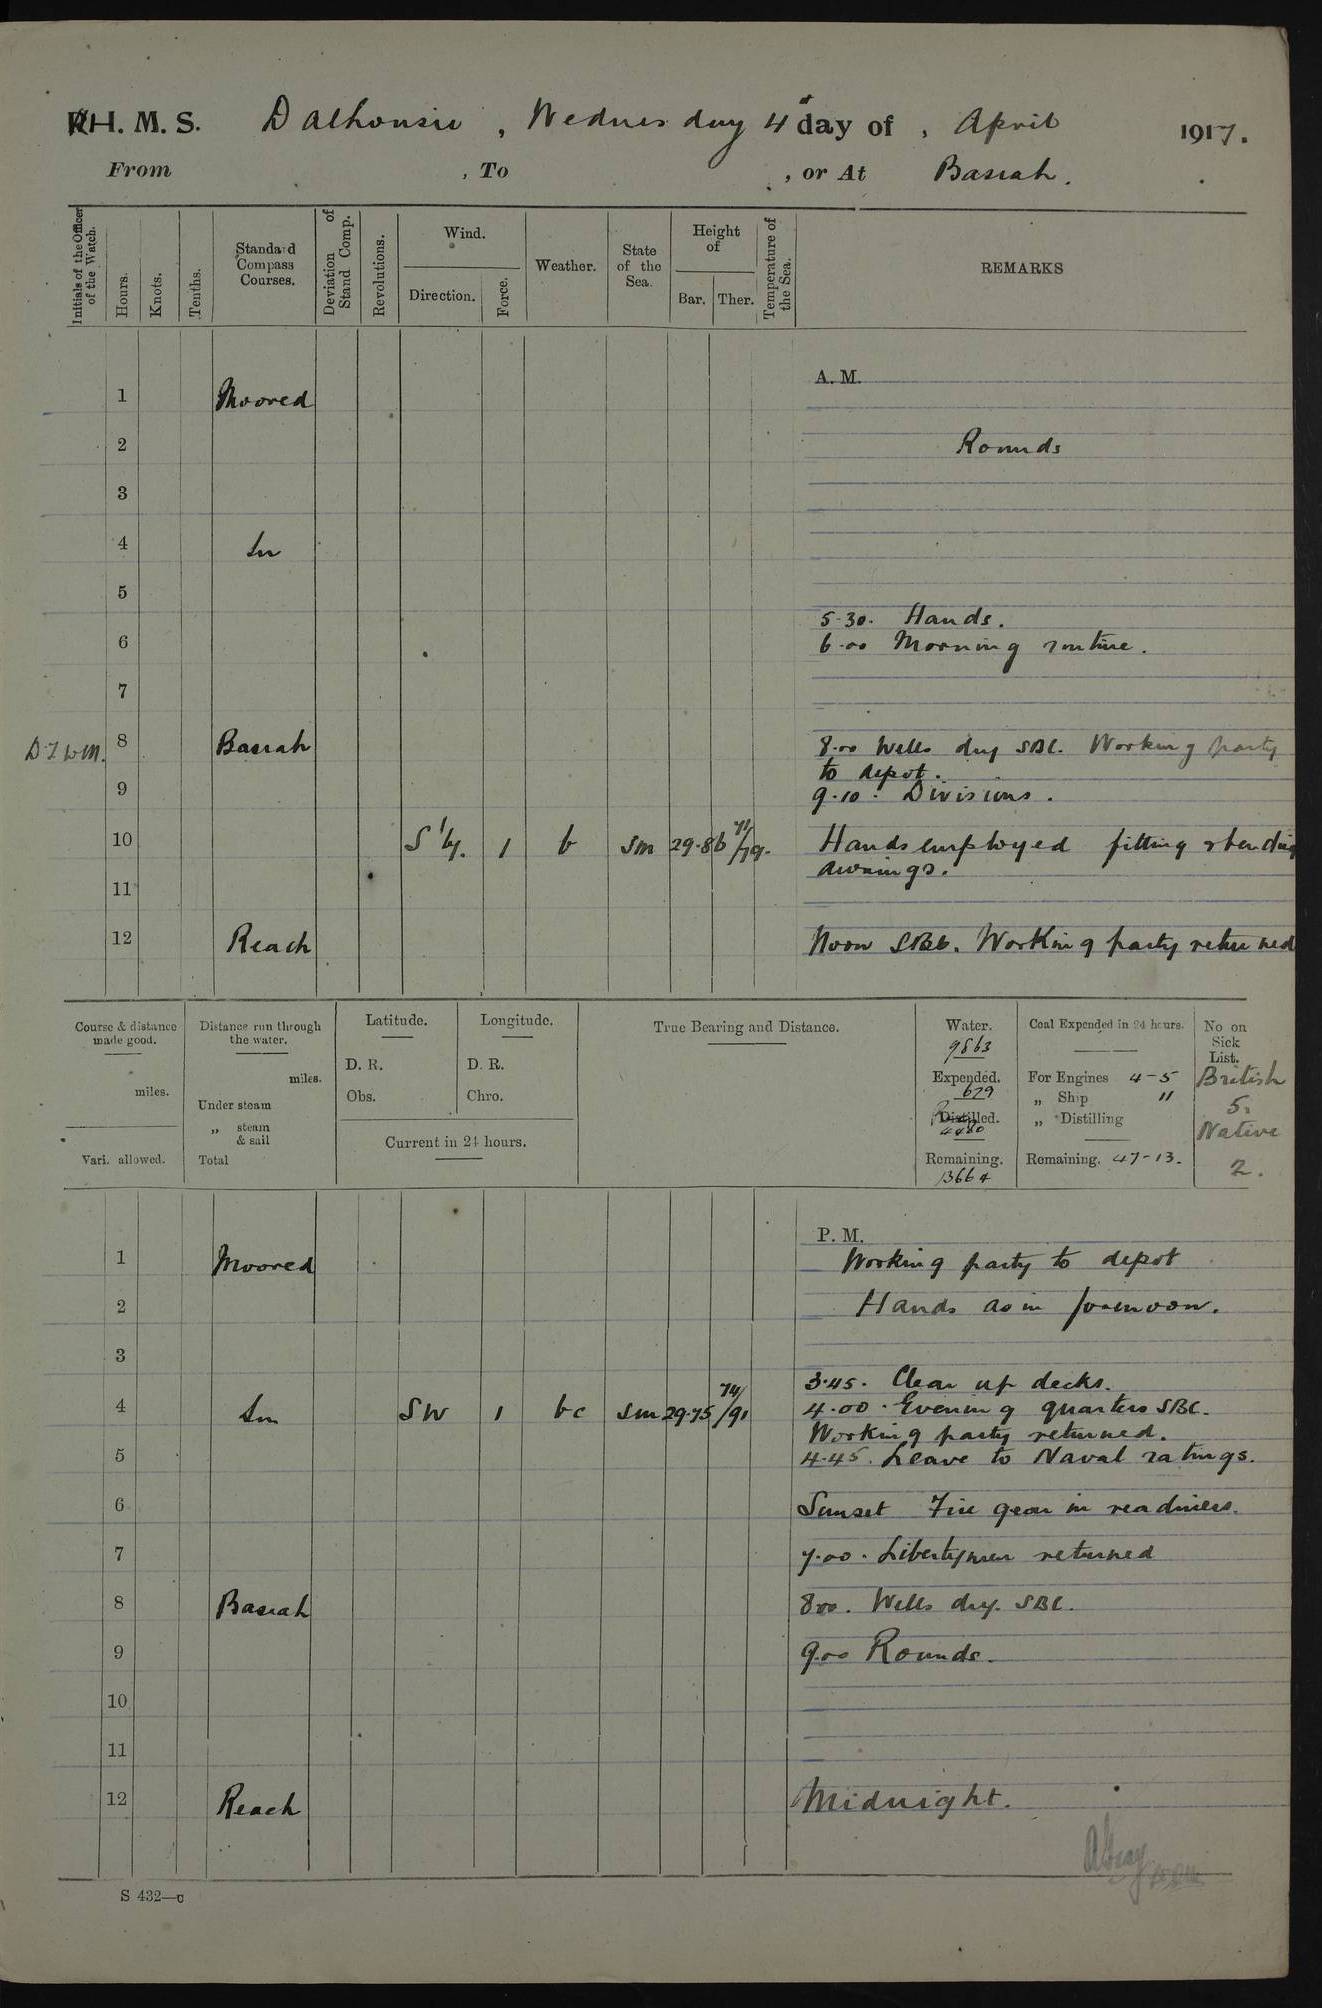 H. M. S. Dalhousie, Wednesday 4th day of, April 1917.
From , To , or At Basrah.
Initials of the Officer of the Watch.
Hours.
Knots.
Tenths.
Standard Compass Courses.
Deviation of Stand Comp.
Revolutions.
Wind.
Direction.
Force.
Weather.
State of the Sea.
Height of
Bar. Ther.
Temperature of the Sea.
REMARKS
A. M.
1 Moored
2 Rounds
3
4 In
5
5.30. Hands.
6 6.00 Morning routine.
7
8 Basrah 8.00 Wells dry SBC. Working party
to depot.
9 9.10. Divisions.
10 S'ly. 1 b Sm 29.86 71/79. Hands employed fitting standing
awnings.
11
12 Reach Noon SBC. Working party returned
Course & distance made good.
miles.
Vari. allowed.
Distance run through the water.
miles.
Under steam
„ steam & sail
Total
Latitude.
D. R.
Obs.
Longitude.
D. R.
Chro.
Current in 24 hours.
True Bearing and Distance.
Water.
9863
Expended.
679
Distilled.
4480
Remaining.
13664
Coal Expended in 24 hours.
For Engines 4-5
„ Ship "
„ Distilling
Remaining. 47-13.
No on Sick List.
British
5.
Native
2.
P. M.
1 Moored Working party to depot
2 Hands as in forenoon.
3
3.45. Clear up decks.
4 In SW 1 bc Sm 29.75 74/91 4.00. Evening quarters SBC.
Working party returned.
5 4.45. Leave to Naval ratings.
6 Sunset Fire gear in readiness.
7 7.00. Libertymen returned
8 Basrah 8.00. Wells dry. SBC.
9 9.00 Rounds.
10
11
12 Reach Midnight.
AGray
S 432—c